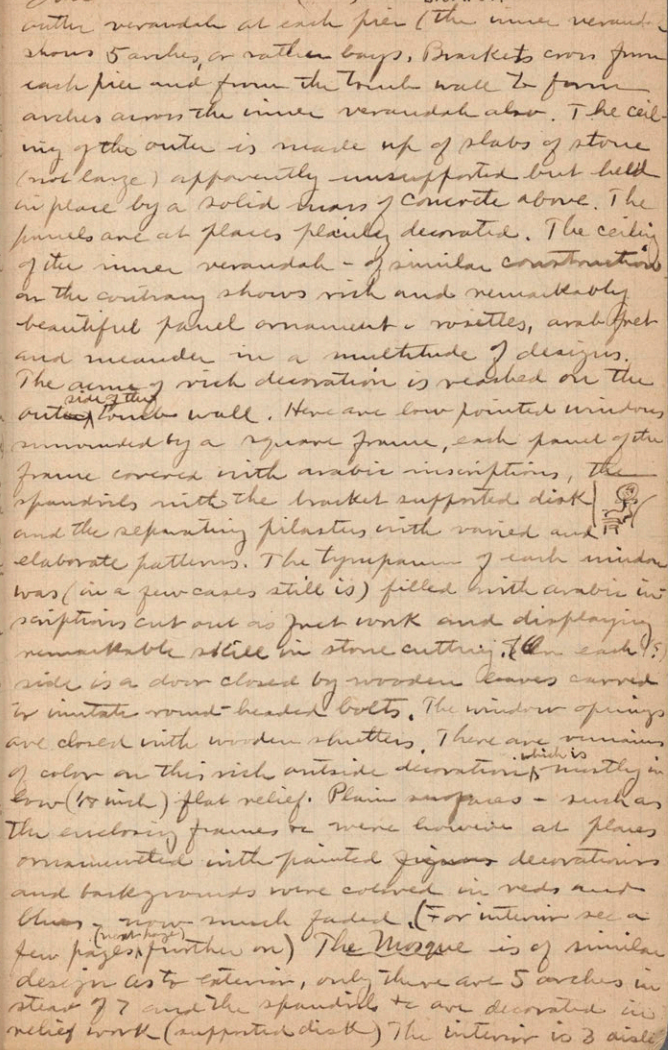 outer verandah at each pier (the inner verandah
shows 5 arches, or rather bays. Brackets cross from
each pier and from the tomb wall to form
arches across the inner verandah also. The ceil-
ing of the outer is made up of slabs of stone
(not large) apparently unsupported but held
in place by a solid mass of concrete above. The
panels are at places plainly decorated. The ceiling
of the inner verandah - of similar construction
on the contrary shows rich and remarkably
beautiful panel ornament - rosettes, arab fret
and meander in a multitude of designs.
The acme of rich decoration is reached on the
outer side of the tomb wall. Here are low pointed windows
surrounded by a square frame, each panel of the
frame covered with arabic inscriptions, the
spandrils with the bracket supported disk
and the separating pilasters with varied and
elaborate patterns. The tympanum of each window
was (in a few cases still is) filled with arabic in-
scriptions cut out as fret work and displaying
remarkable skill in stone cutting. On each (?)
side is a door closed by wooden leaves carved
to imitate round-headed bolts. The window openings
are closed with wooden shutters. There are remains
of color on this rich outside decoration, which is mostly in
low (1/8 inch) flat relief. Plain surfaces - such as
the enclosing frames &c were however at places
ornamented with painted figures decorations
and backgrounds were colored in reds and
blues - now much faded. (For interior see a
few pages (next page) further on) The Mosque is of similar
design as to exterior, only there are 5 arches in
stead of 7 and the spandrils &c are decorated in
relief work (supported disk) The interior is 3 aisled